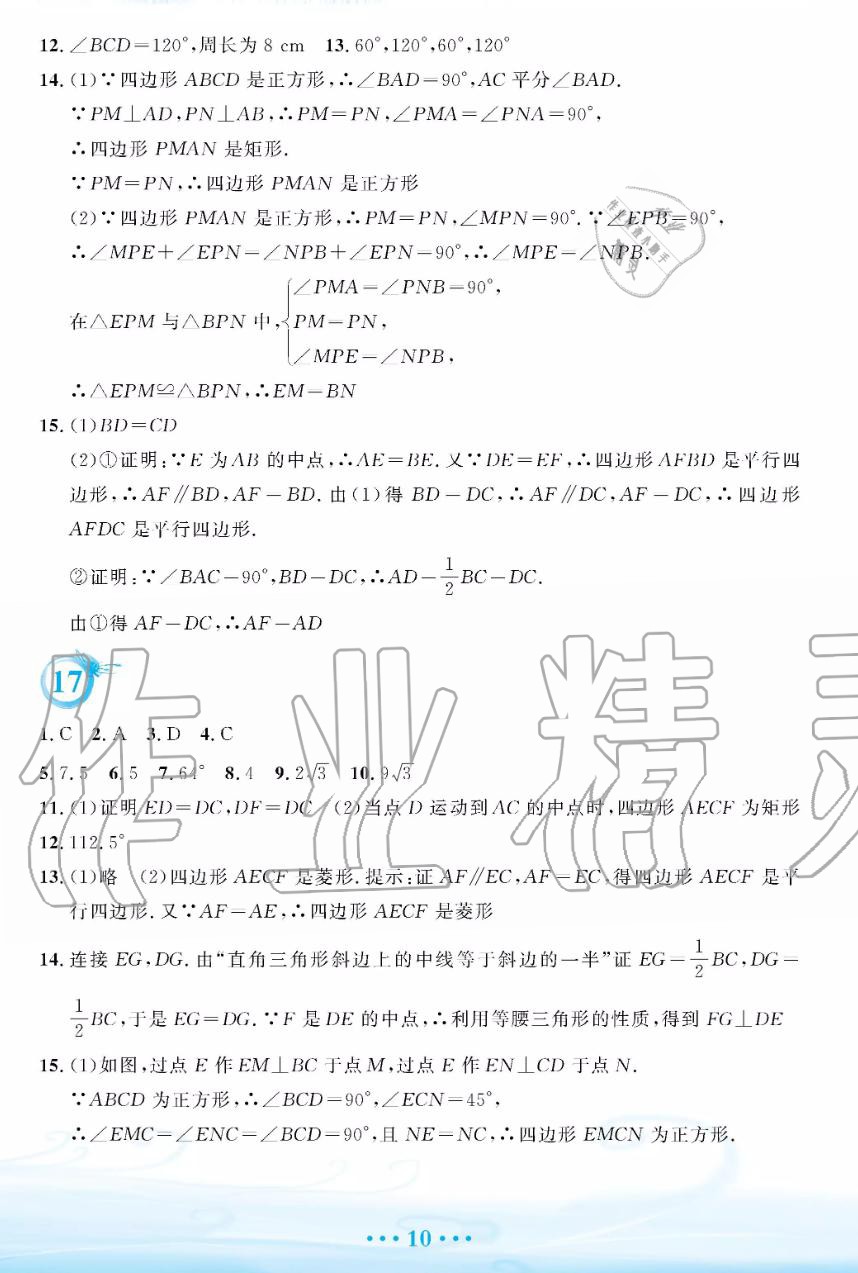 12. ∠BCD=120°,周长为 8 cm 13. 60°,120°,60°,120°
14. (1)∵四边形 ABCD 是正方形,∴∠BAD=90°,AC 平分∠BAD.
∵PM⊥AD,PN⊥AB,∴PM=PN,∠PMA=∠PNA=90°,
∴四边形 PMAN 是矩形.
∵PM=PN,∴四边形 PMAN 是正方形
(2)∵四边形 PMAN 是正方形,∴PM=PN,∠MPN=90°.∵∠EPB=90°,
∴∠MPE+∠EPN=∠NPB+∠EPN=90°,∴∠MPE=∠NPB.
∠PMA=∠PNB=90°,
在△EPM 与△BPN 中,{PM=PN,
∠MPE=∠NPB,
∴△EPM≌△BPN,∴EM=BN
15. (1)BD=CD
(2)①证明:∵E 为AB 的中点,∴AE=BE.又∵DE=EF,∴四边形 AFBD 是平行四
边形,∴AF∥BD,AF=BD.由(1)得 BD=DC,∴AF∥DC,AF=DC,∴四边形
AFDC 是平行四边形.
②证明:∵∠BAC=90°,BD=DC,∴AD=1/2BC=DC.
由①得 AF=DC,∴AF=AD
17
1. C 2. A 3. D 4. C
5. 7.5 6. 5 7. 64° 8. 4 9. 2√3 10. 9√3
11. (1)证明ED=DC,DF=DC (2)当点 D 运动到 AC 的中点时,四边形 AECF 为矩形
12. 112.5°
13. (1)略 (2)四边形 AECF 是菱形.提示:证 AF∥EC,AF=EC,得四边形 AECF 是平
行四边形.又∵AF=AE,∴四边形 AECF 是菱形
14. 连接 EG,DG.由“直角三角形斜边上的中线等于斜边的一半”证 EG=1/2BC,DG=
1/2BC,于是 EG=DG.∵F 是 DE 的中点,∴利用等腰三角形的性质,得到 FG⊥DE
15. (1)如图,过点 E 作 EM⊥BC 于点 M,过点 E 作 EN⊥CD 于点 N.
∵ABCD 为正方形,∴∠BCD=90°,∠ECN=45°,
∴∠EMC=∠ENC=∠BCD=90°,且 NE=NC,∴四边形 EMCN 为正方形.
作业精灵
••• 10 •••